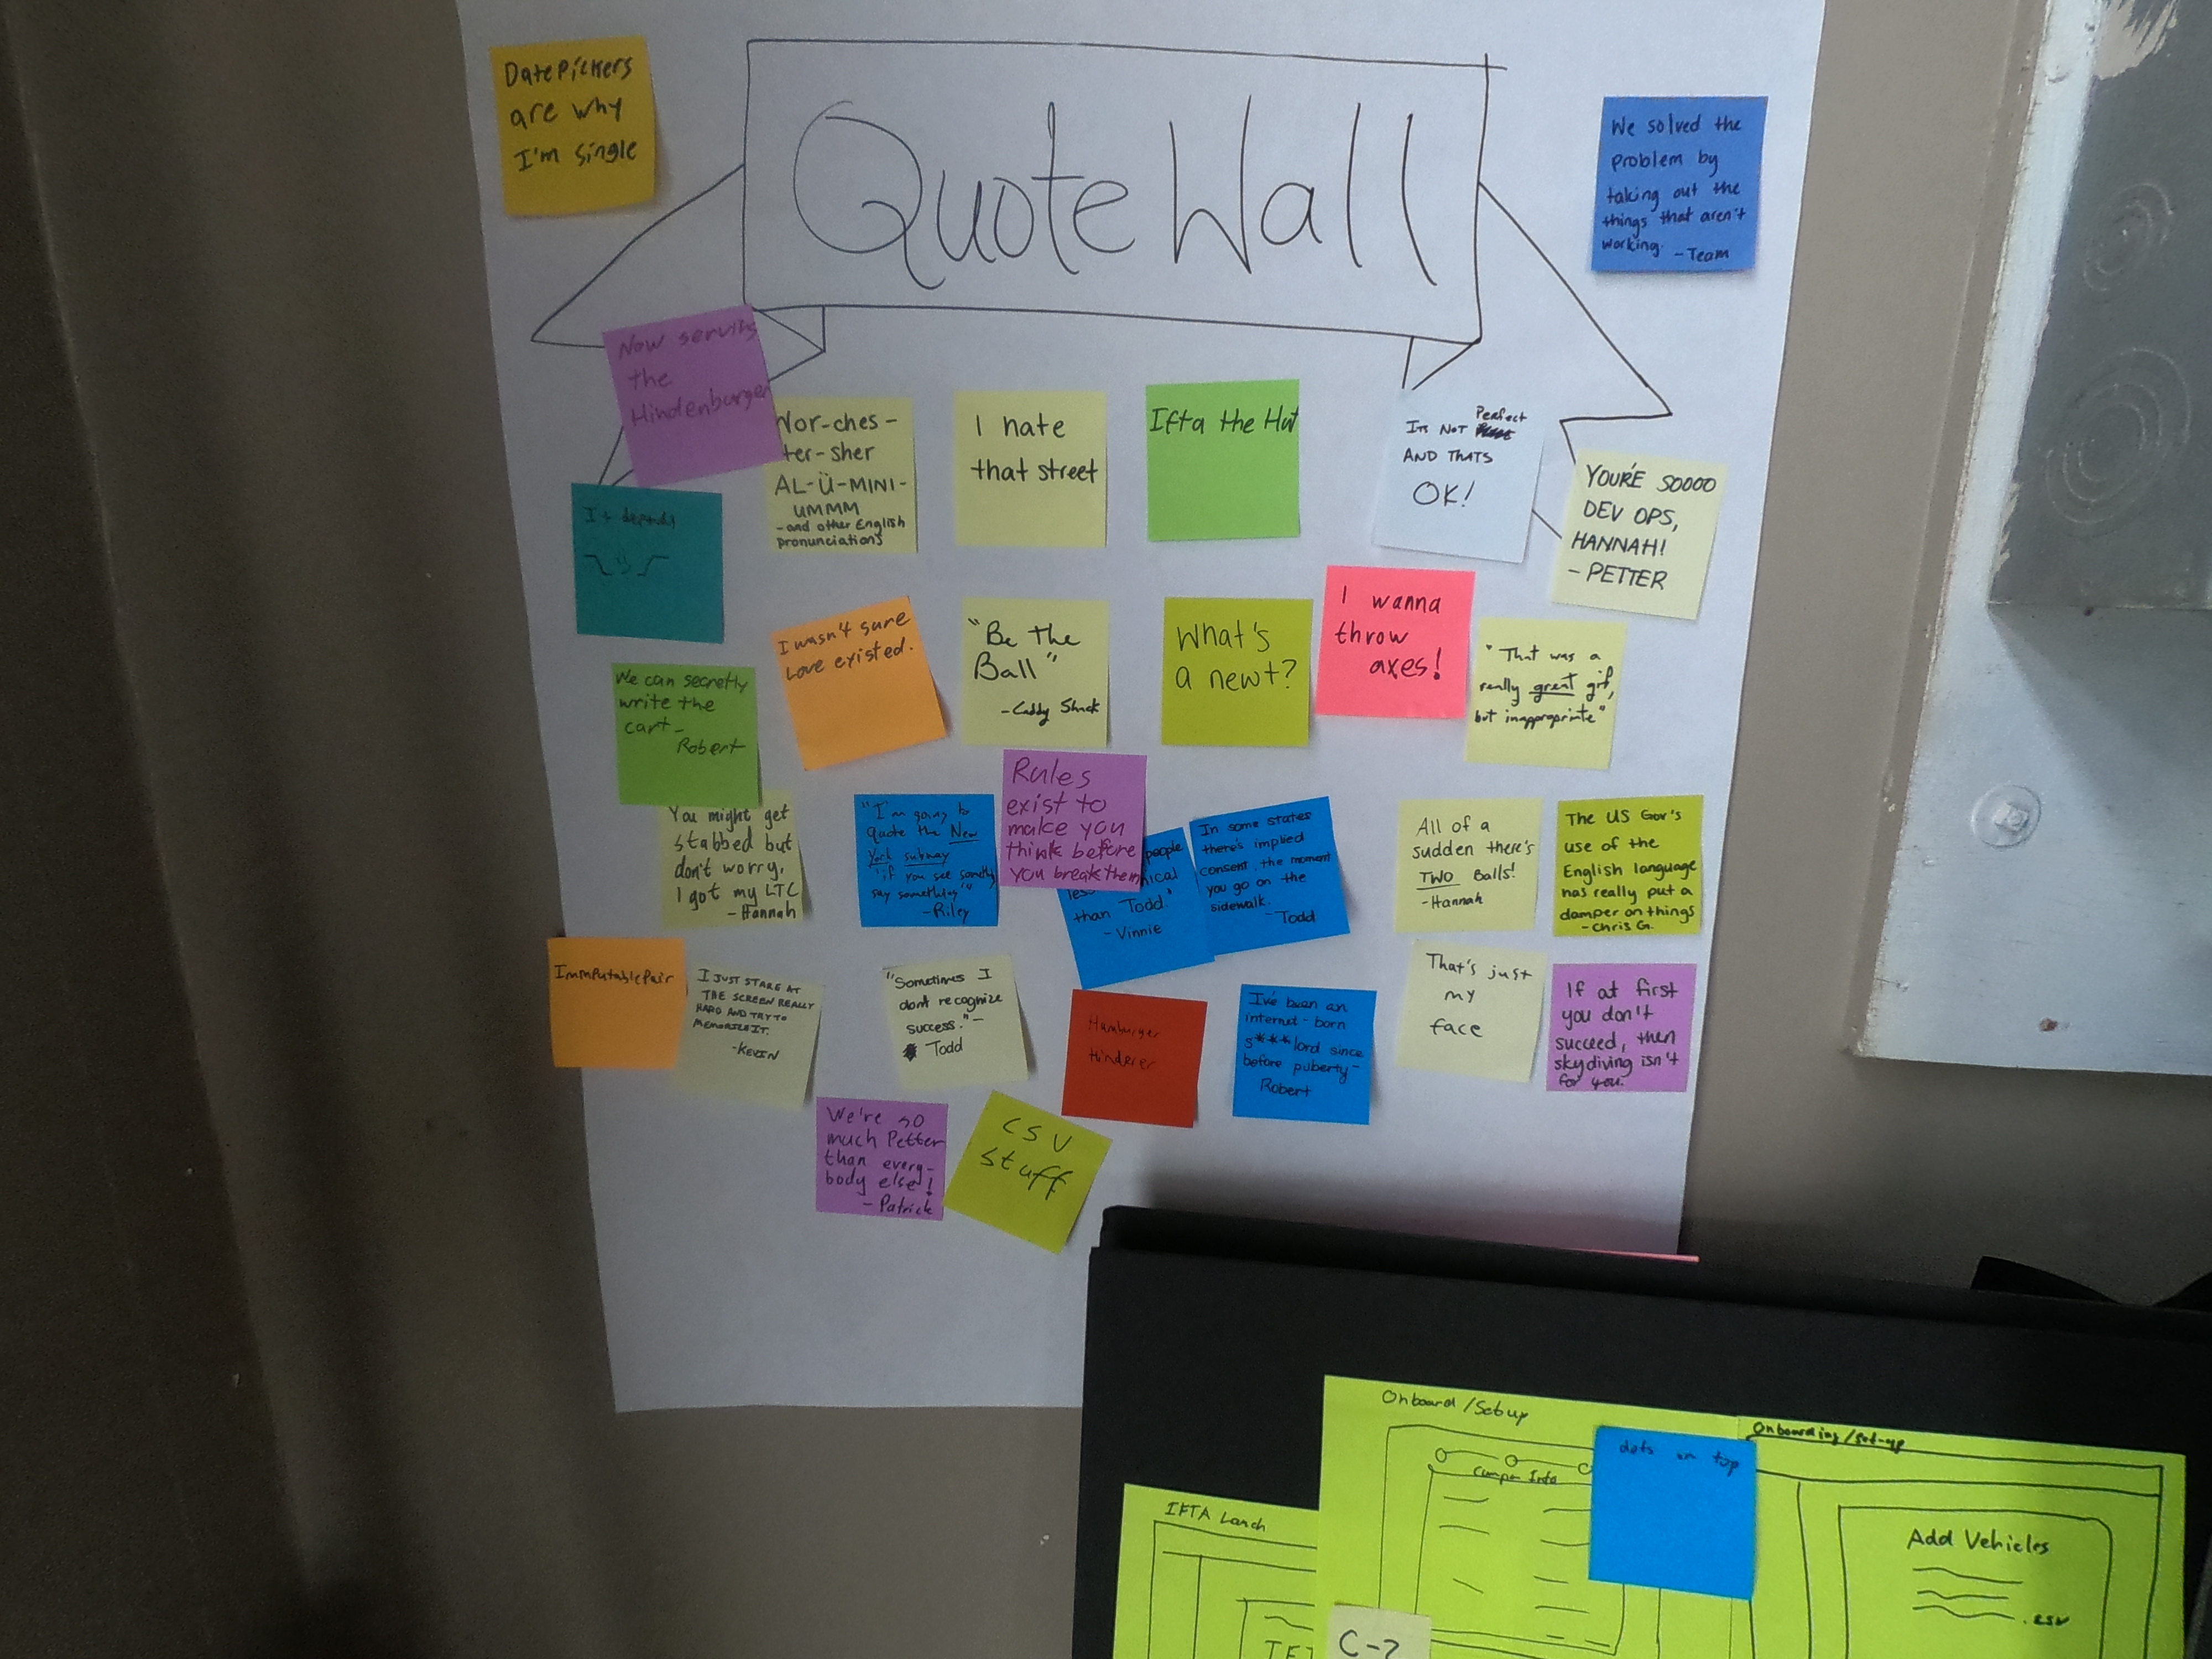 Date Pickers
are why
I'm single
Quote Wall
We solved the
problem by
taking out the
things that aren't
working.
- Team
Now serving
the
Hindenburger
Wor-ches-
ter-sher
AL-Ü-MINI-
UMMM
- and other English
pronunciations
I hate
that street
Ifta the Hut
ITS NOT Perfect
AND THATS
OK!
YOU'RE SOOOO
DEV OPS,
HANNAH!
- PETTER
It depends
I wasn't sure
Love existed.
"Be the
Ball"
- Caddy Shack
What's
a newt?
I wanna
throw
axes!
"That was a
really great gif,
but inappropriate"
We can secretly
write the
cart -
Robert
You might get
stabbed but
don't worry,
I got my LTC
- Hannah
"I'm going to
quote the New
York subway
"if you see something
say something""
- Riley
Rules
exist to
make you
think before
you break them
people
less
than Todd."
- Vinnie
In some states
there's implied
consent the moment
you go on the
sidewalk.
- Todd
All of a
sudden there's
TWO Balls!
- Hannah
The US Gov's
use of the
English language
has really put a
damper on things
- Chris G.
ImmPutablePair
I JUST STARE AT
THE SCREEN REALLY
HARD AND TRY TO
MEMORIZE IT.
- KEVIN
"Sometimes I
don't recognize
success." -
Todd
Hamburger
Hinderer
I've been an
internet-born
s***lord since
before puberty -
Robert
That's just
my
face
If at first
you don't
succeed, then
skydiving isn't
for you.
We're so
much Petter
than every-
body else!
- Patrick
CSV
stuff
Onboard/Setup
Info
dots on top
Onboarding/set-up
Add Vehicles
.csv
IFTA
C-?